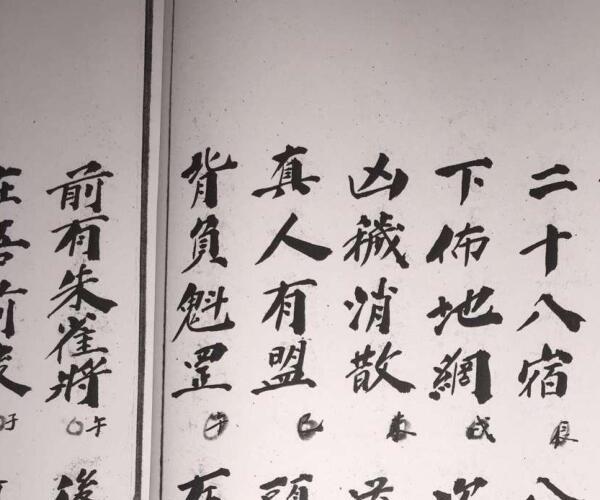 二十八宿
下佈地網戌
凶穢消散
真人有盟
背負魁罡
前有朱雀將午
在吾前後